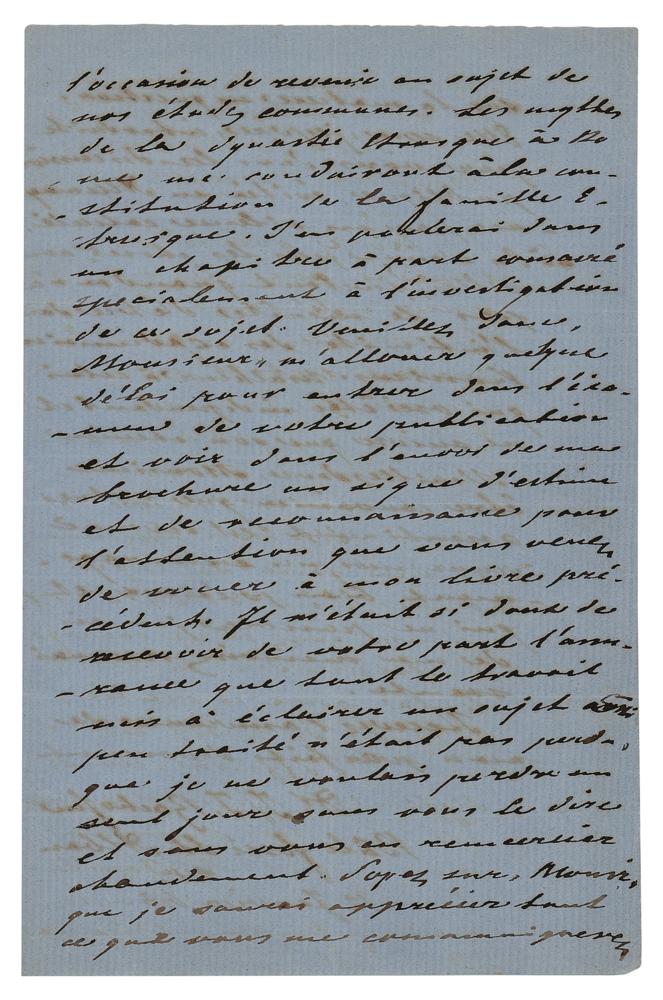 l'occasion de revenir au sujet de
nos études communes. Les mythes
de la dynastie Etrusque à Ro
me me conduiront à la con-
-stitution de la famille E-
trusque. J'en parlerai dans
un chapitre à part consacré
specialement à l'investigation
de ce sujet. Veuillez donc,
Monsieur, m'allouer quelque
délai pour entrer dans l'exa-
-men de votre publication
et voir dans l'envoi de ma
brochure un signe d'estime
et de reconnaissance pour
l'attention que vous venez
de vouer à mon livre pré-
-cédent. Il m'était si doux de
recevoir de votre part l'assu-
-rance que tout le travail
mis à éclairer un sujet aussi
peu traité n'était pas perdu,
que je ne voulais perdre un
seul jour sans vous le dire
et sans vous en remercier
chaudement. Soyez sur, Monsr,
que je saurai apprécier tout
ce que vous me communiquerez